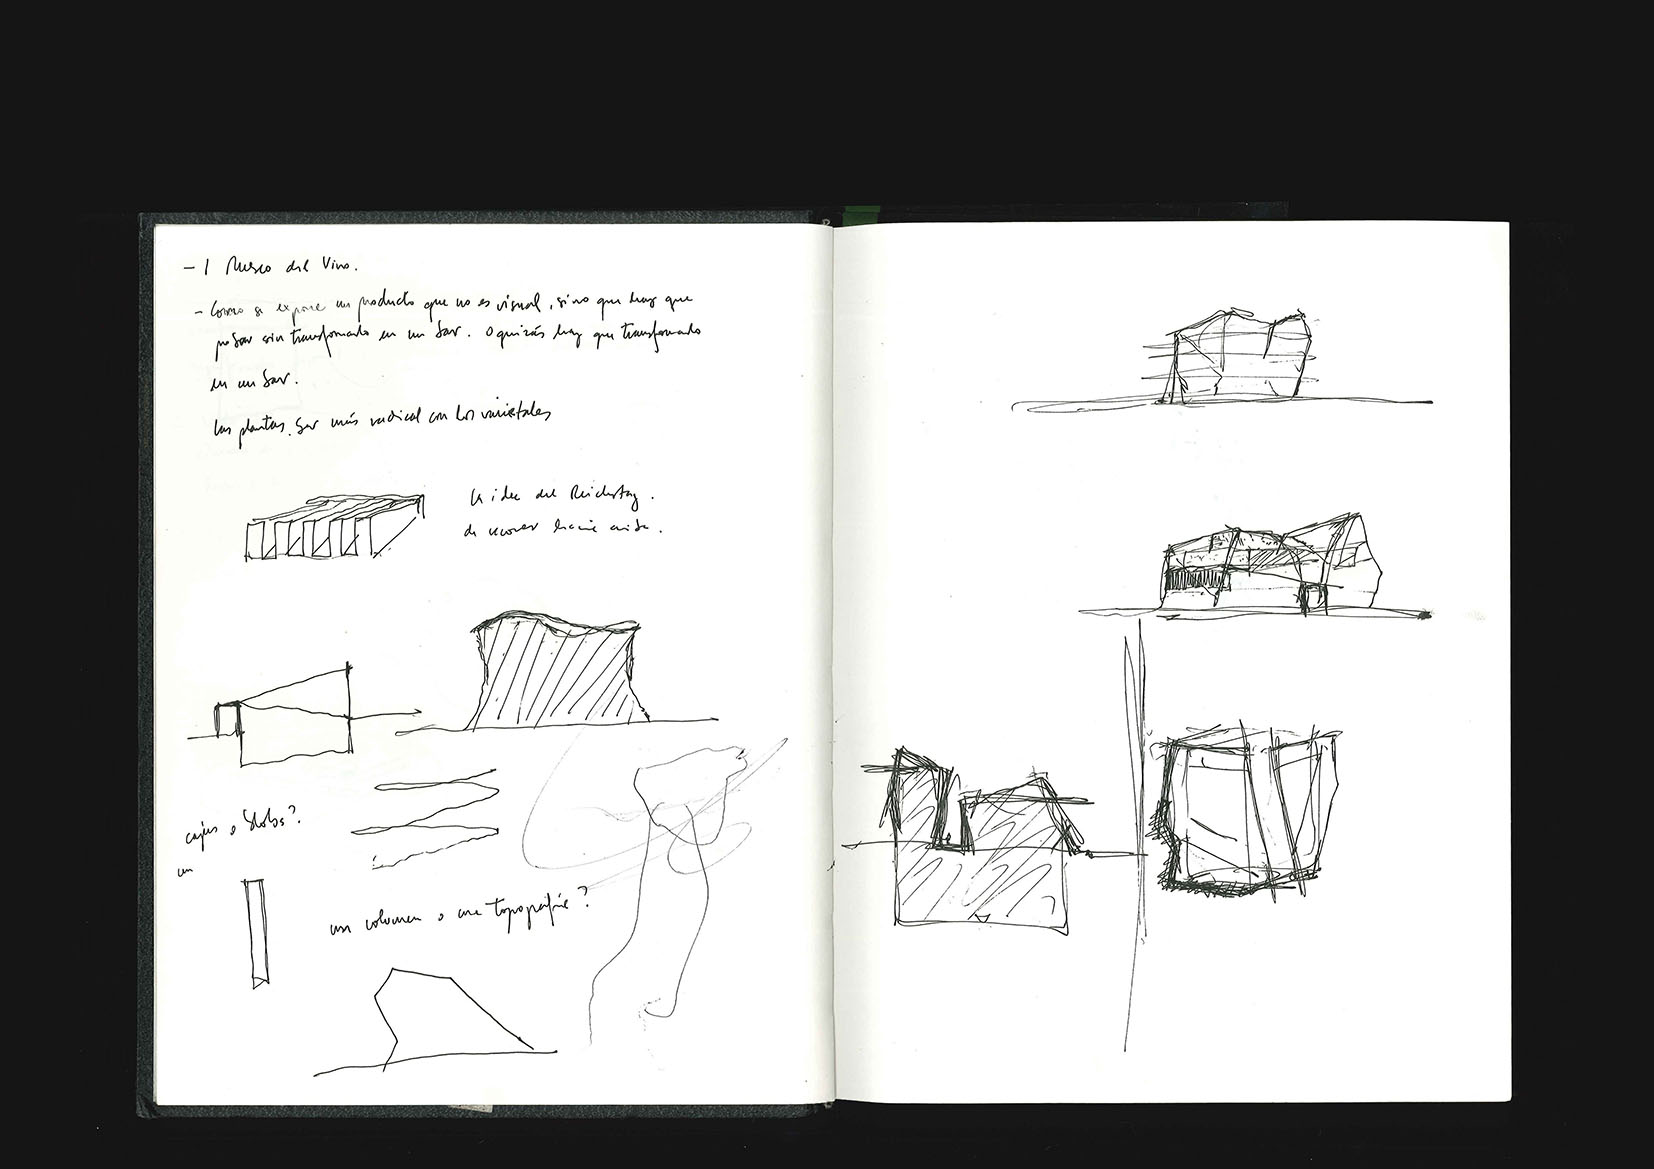 - 1 Museo del Vino.
- Como se expone un producto que no es visual, sino que hay que
probar sin transformarlo en un bar. O quizás hay que transformarlo
en un bar.
las plantas. Ser más radical con los varietales
la idea del Reichstag.
de recorrer hacia arriba.
cajas o blobs?
un
un volumen o una topografía?